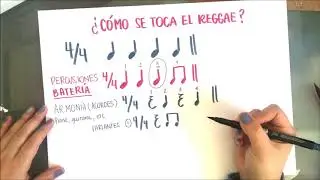 ¿CÓMO SE TOCA EL REGGAE?
4/4
PERCUSIONES 4/4 1 2 3 4
BATERÍA
ARMONÍA (ACORDES) 4/4
Piano, guitarra, etc.
VARIANTES 4/4